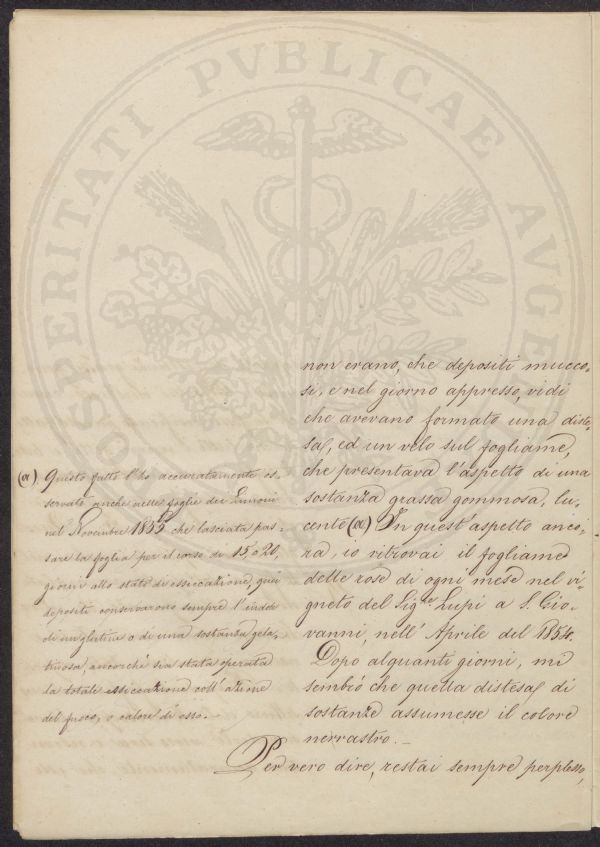 PROSPERITATI PVBLICAE AVGENDAE
non erano, che depositi mucco-
si, e nel giorno appresso, vidi
che avevano formato una diste-
sa, ed un velo sul fogliame,
che presentava l'aspetto di una
sostanza grassa gommosa, lu-
cente (a) In quest'aspetto anco-
ra, io ritrovai il fogliame
delle rose di ogni mese nel vi-
gneto del Sig.re Lupi a S. Gio-
vanni, nell'Aprile del 1854.
Dopo alquanti giorni, mi
sembrò che quella distesa di
sostanze assumesse il colore
nerrastro.
Per vero dire, restai sempre perplesso,
(a) Questo fatto l'ho accuratamente os-
servato anche nelle foglie dei Limoni
nel Novembre 1855 che lasciata pas-
sare la foglia per il corso di 15, o 20,
giorni allo stato di essiccazione, quei
depositi conservarono sempre l'indole
di un glutine o di una sostanza gela-
tinosa, ancorchè sia stata operata
la totale essiccazione coll'azione
del fuoco, o calore di esso.